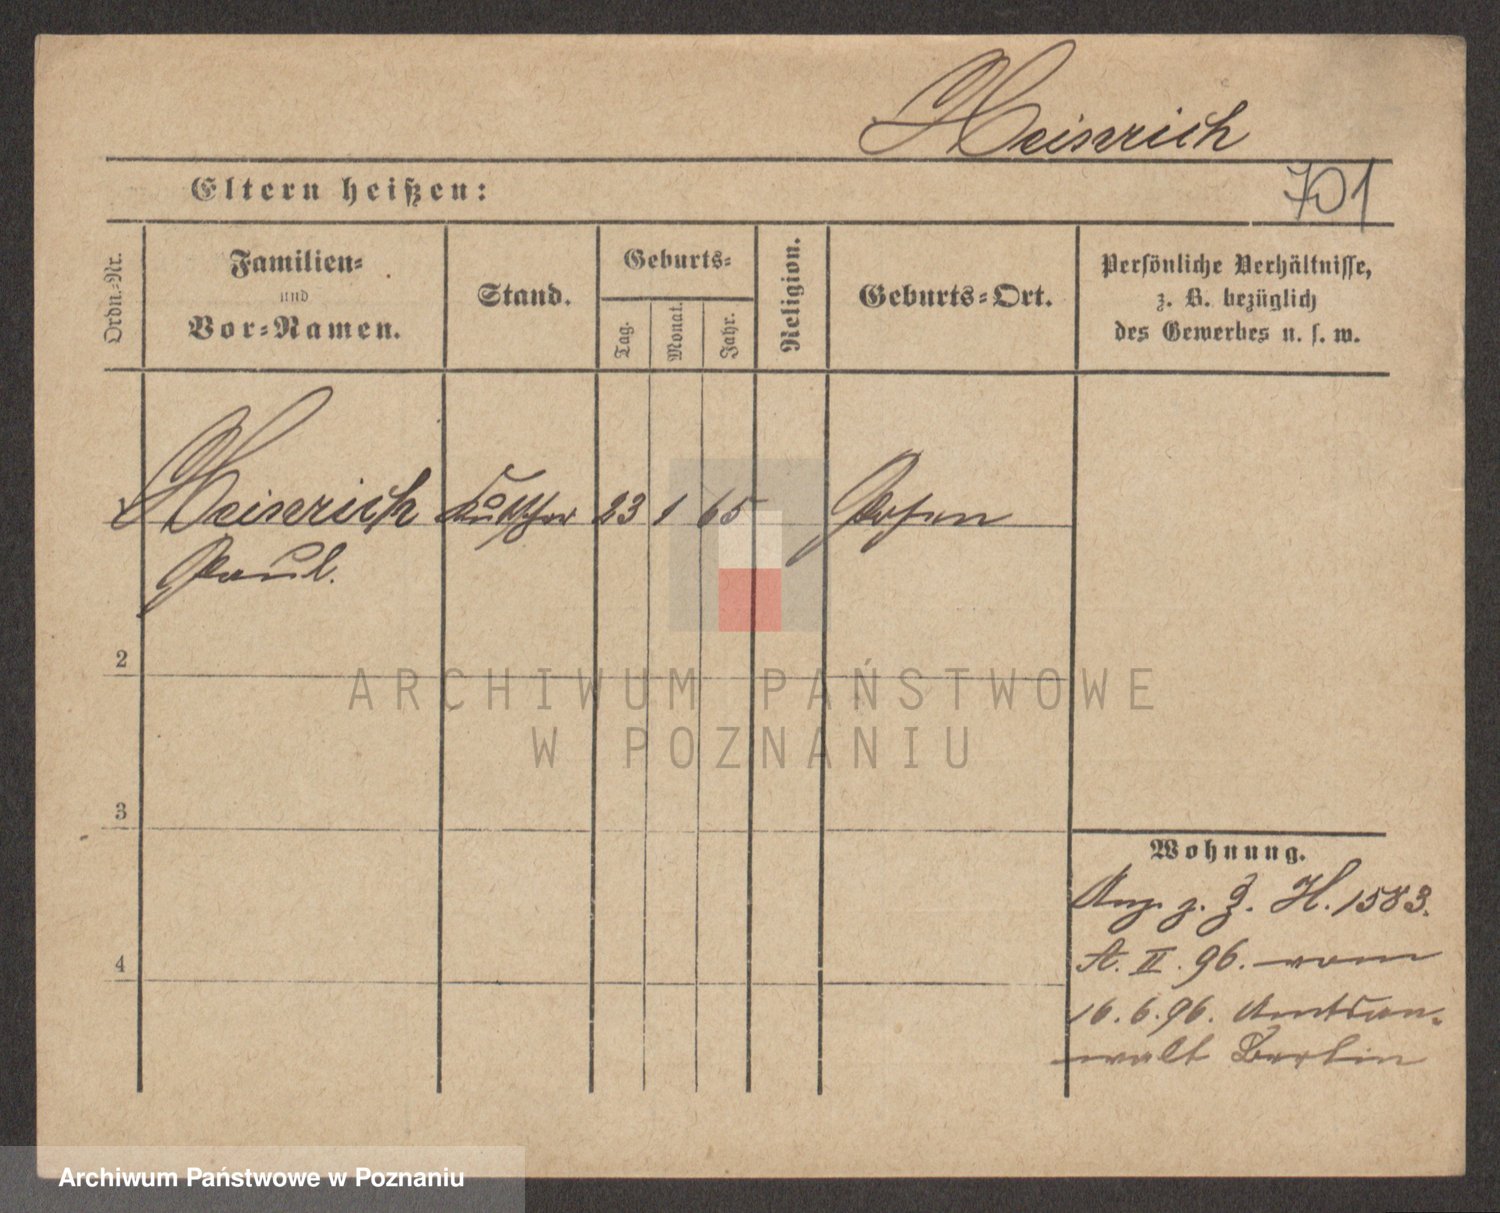 Heinrich
701
Eltern heißen:
Ordn.-Nr.
Familien-
und
Vor-Namen.
Stand.
Geburts-
Tag.
Monat.
Jahr.
Religion.
Geburts-Ort.
Persönliche Verhältnisse,
z. B. bezüglich
des Gewerbes u. s. w.
Heinrich Kutscher 23 1 65 Posen
Paul.
2
3
4
Wohnung.
Anz. z. Z. H. 1583.
A. II. 96. vom
16. 6. 96. Amtsan-
walt Berlin
ARCHIWUM PAŃSTWOWE
W POZNANIU
Archiwum Państwowe w Poznaniu